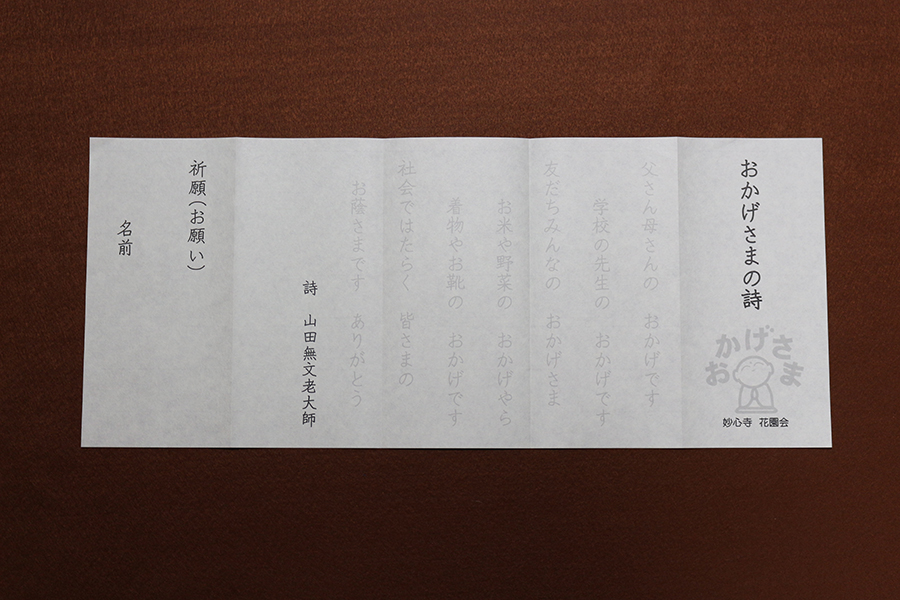 おかげさまの詩
おかげさま
妙心寺 花園会
父さん母さんの おかげです
学校の先生の おかげです
友だちみんなの おかげさま
お米や野菜の おかげやら
着物やお靴の おかげです
社会ではたらく 皆さまの
お蔭さまです ありがとう
詩 山田無文老大師
祈願(お願い)
名前